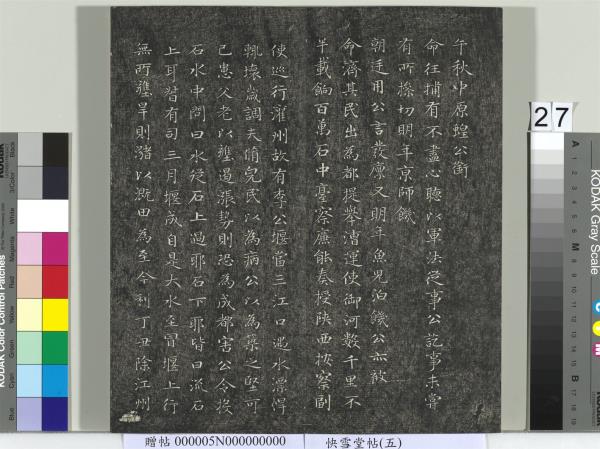 午秋中原蝗公銜
命往捕有不盡心聽以軍法從事公訖事未嘗
有所操切明年京師饑
朝廷用公言發廩又明年魚兒泊饑公亦敕
命濟其民出為都提舉漕運使御河數千里不
半載餉百萬石中臺察廉能奏授陝西按察副
使巡行灌州故有李公堰當三江口遇水潦悍
輒壞歲調夫脩完民以為病公以為築之堅可
已患人老以壅遏漲勢則恐為成都害公令投
石水中問曰水從石上過耶石下耶皆曰流石
上耳督有司三月堰成自是大水至冒堰上行
無所壅旱則瀦以溉田為至今利丁丑除江州
27
贈帖 000005N000000000
快雪堂帖(五)
KODAK Gray Scale
KODAK Color Control Patches
Blue
Cyan
Green
Yellow
Red
Magenta
White
3/Color
Black
A
1
2
3
4
5
6
M
8
9
10
11
12
13
14
15
B
17
18
19
C
Y
M